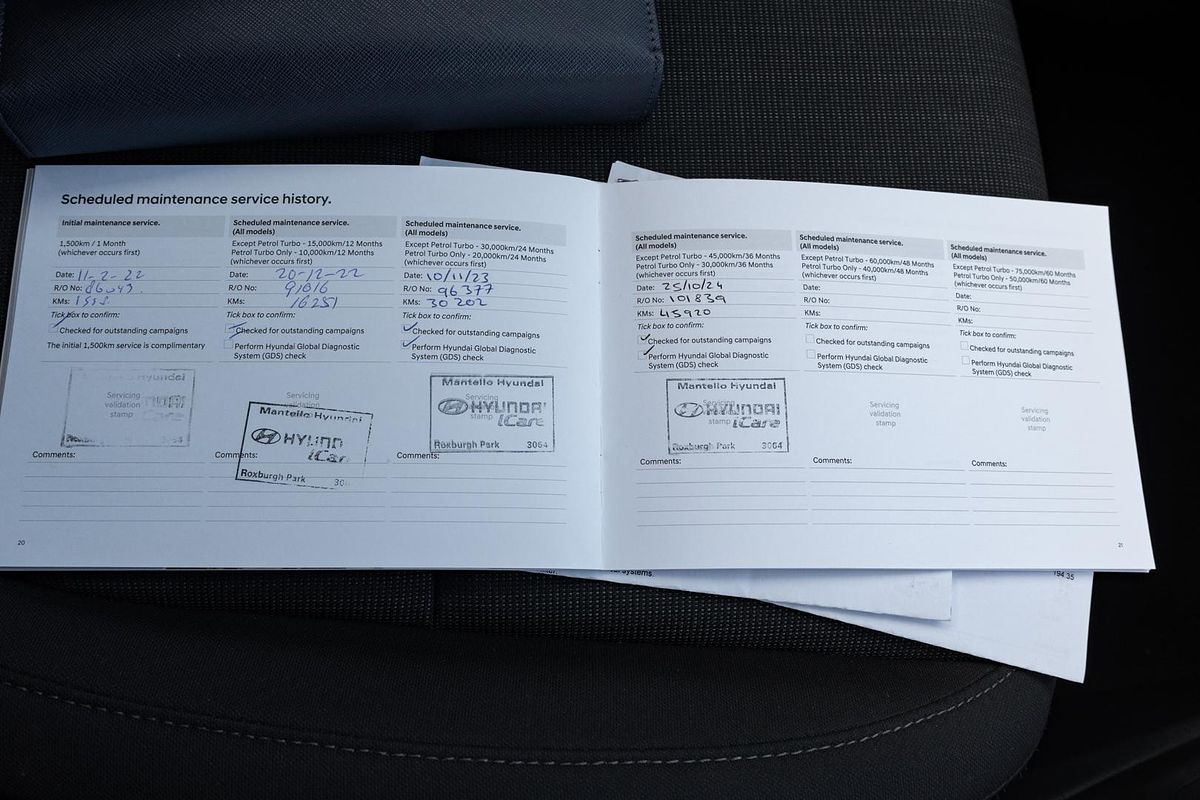 Scheduled maintenance service history.
Initial maintenance service.
1,500km / 1 Month
(whichever occurs first)
Date: 11-2-22
R/O No: 86043
KMs:
Tick box to confirm:
Checked for outstanding campaigns
The initial 1,500km service is complimentary
Servicing
validation
stamp
Mantello Hyundai
Roxburgh Park
Comments:
Scheduled maintenance service.
(All models)
Except Petrol Turbo - 15,000km/12 Months
Petrol Turbo Only - 10,000km/12 Months
(whichever occurs first)
Date: 20-12-22
R/O No: 91616
KMs: 16251
Tick box to confirm:
Checked for outstanding campaigns
Perform Hyundai Global Diagnostic
System (GDS) check
Servicing
validation
Mantello Hyundai
HYUND
iCar
Roxburgh Park 30
Comments:
Scheduled maintenance service.
(All models)
Except Petrol Turbo - 30,000km/24 Months
Petrol Turbo Only - 20,000km/24 Months
(whichever occurs first)
Date: 10/11/23
R/O No: 96377
KMs: 30202
Tick box to confirm:
Checked for outstanding campaigns
Perform Hyundai Global Diagnostic
System (GDS) check
Mantello Hyundai
Servicing
HYUNDAI
stamp iCare
Roxburgh Park 3064
Comments:
20
Scheduled maintenance service.
(All models)
Except Petrol Turbo - 45,000km/36 Months
Petrol Turbo Only - 30,000km/36 Months
(whichever occurs first)
Date: 25/10/24
R/O No: 101839
KMs: 45920
Tick box to confirm:
Checked for outstanding campaigns
Perform Hyundai Global Diagnostic
System (GDS) check
Mantello Hyundai
Servicing
HYUNDAI
stamp iCare
Roxburgh Park 3064
Comments:
Scheduled maintenance service.
(All models)
Except Petrol Turbo - 60,000km/48 Months
Petrol Turbo Only - 40,000km/48 Months
(whichever occurs first)
Date:
R/O No:
KMs:
Tick box to confirm:
Checked for outstanding campaigns
Perform Hyundai Global Diagnostic
System (GDS) check
Servicing
validation
stamp
Comments:
Scheduled maintenance service.
(All models)
Except Petrol Turbo - 75,000km/60 Months
Petrol Turbo Only - 50,000km/60 Months
(whichever occurs first)
Date:
R/O No:
KMs:
Tick box to confirm:
Checked for outstanding campaigns
Perform Hyundai Global Diagnostic
System (GDS) check
Servicing
validation
stamp
Comments:
21
systems.
194.35